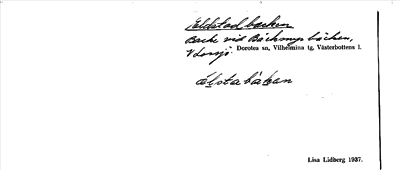 Eldstadbacken
Backe vid Bäckmyrbäcken,
V Lövsjö. Dorotea sn, Vilhelmina tg, Västerbottens l.
Lisa Lidberg 1937.